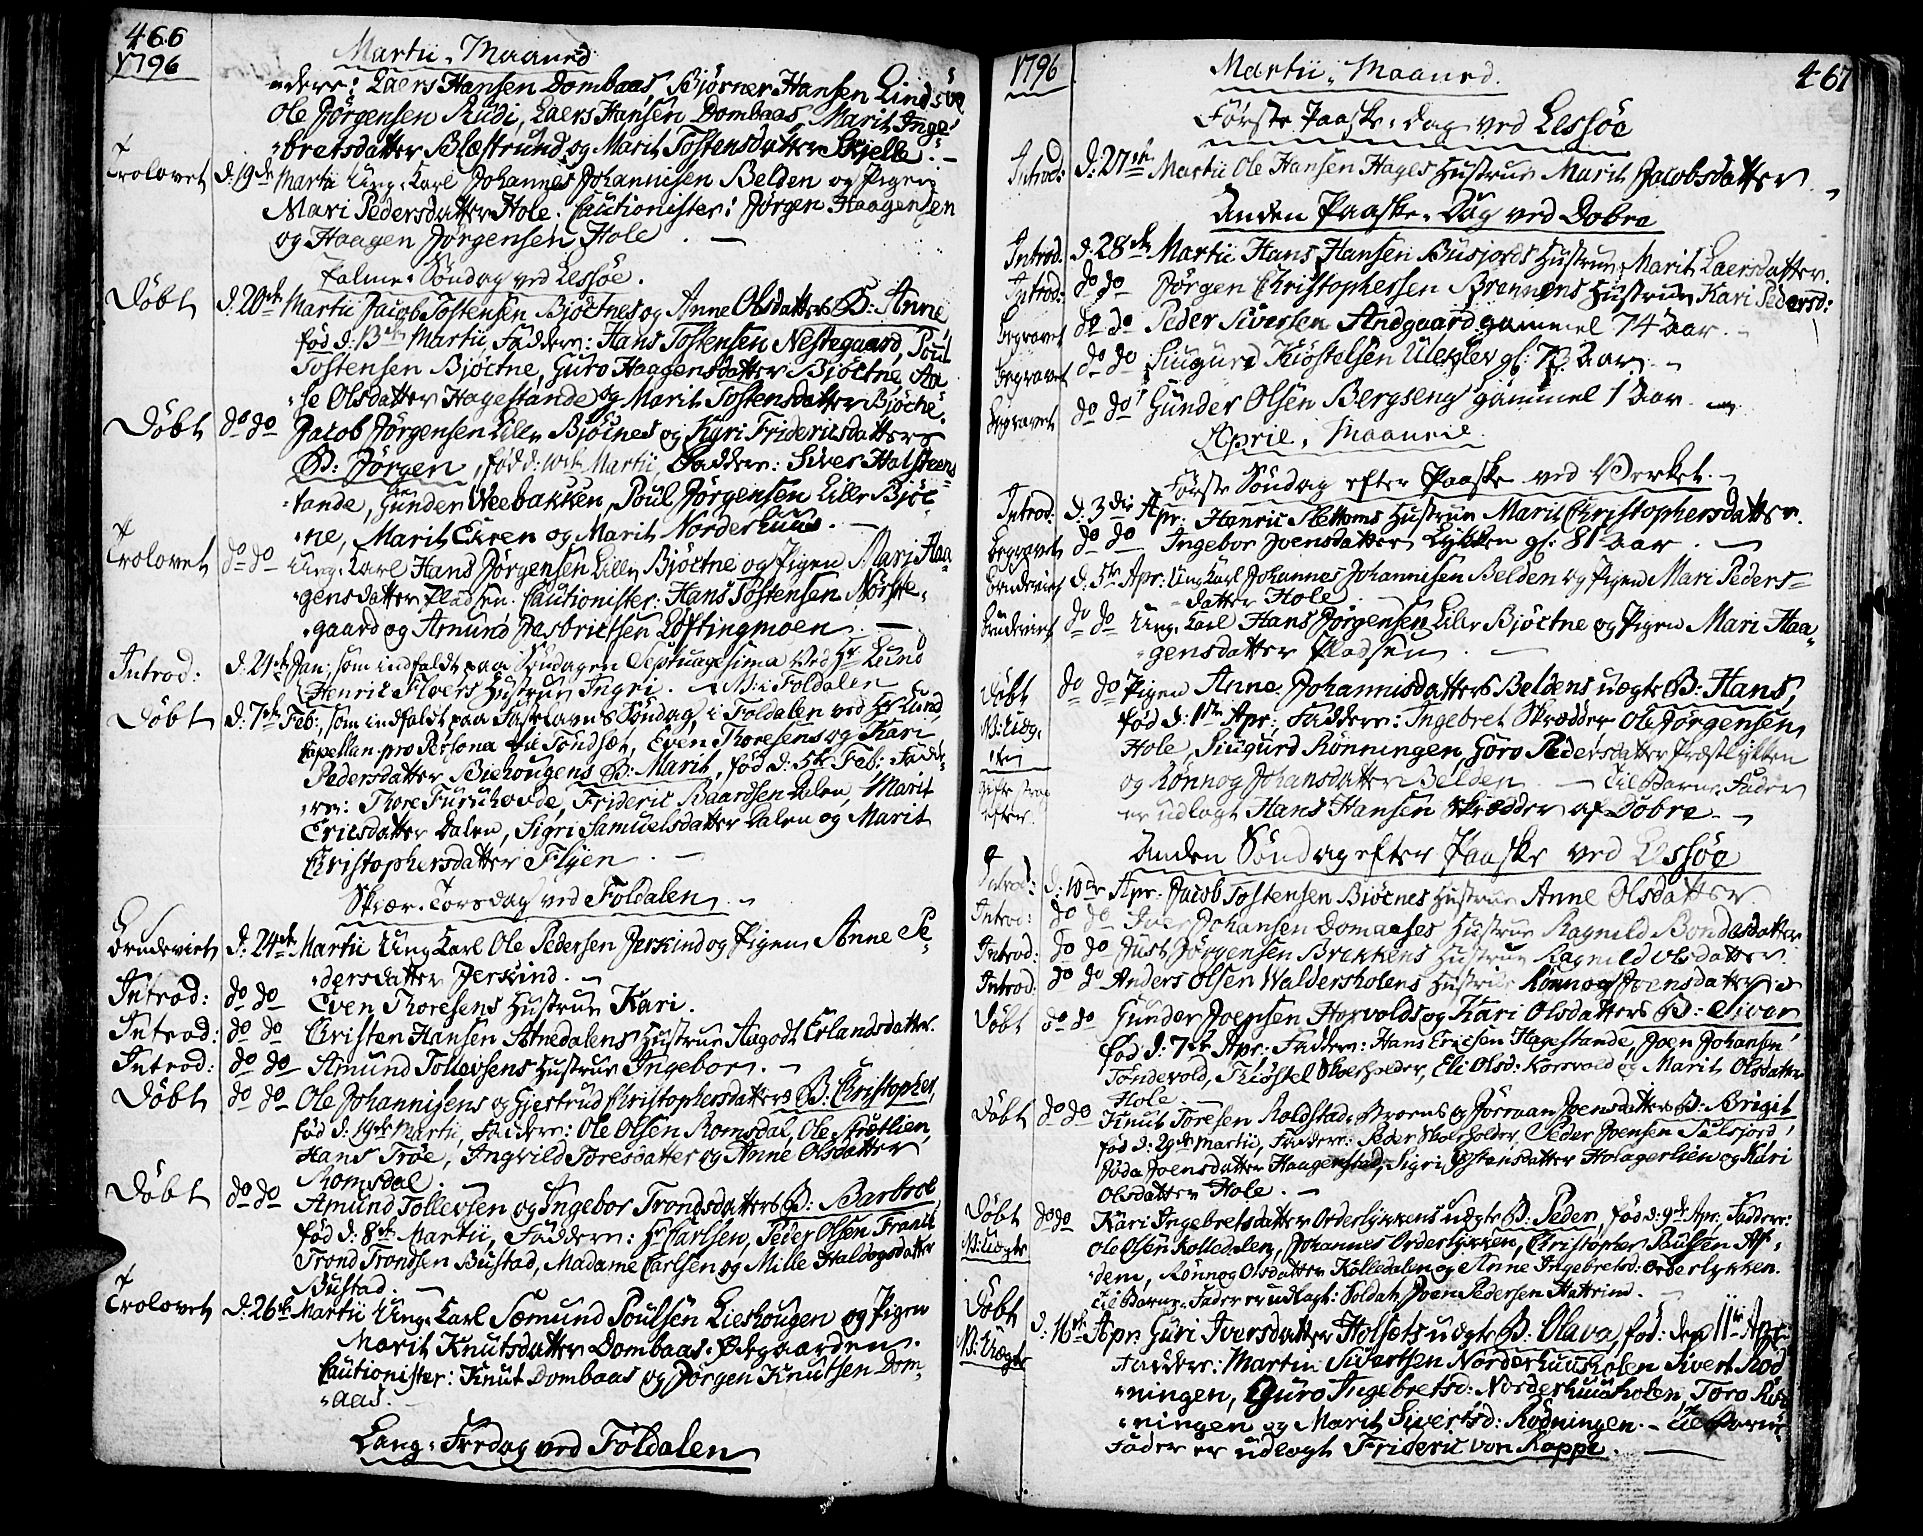 466
1796
Martii Maaned
-dere: Laers Hansen Dombaas, Bjørner Hansen Lindsøe
Ole Jørgensen Rudi, Laers Hansen Dombaas, Marit Inge-
-bretsdatter Blæstrund og Marit Tostensdatter Skjelle. -
Trolovet d. 19de Martii Ung-Karl Johannes Johannisen Belden og Pigen
Mari Pedersdatter Hole. Cautionister: Jørgen Haagensen
og Haagen Jørgensen Hole. -
Palme-Søndag ved Lessøe.
Døbt d. 20de Martii Jacob Tostensen Bjøctnes og Anne Olsdatters B: Anne
fød d: 13de Martii, Faddere: Hans Tostensen Nestegaard, Poul
Tostensen Bjøctne, Guro Haagensdatter Bjøctne, Aa-
-se Olsdatter Hagestande og Marit Tostensdatter Bjøctne.
Døbt do do Jacob Jørgensen Lille Bjøcnes og Sigri Fridericsdatters
B: Jørgen, fød d: Martii, Faddere: Siver Halsteens-
-tande, Gunder Weebakken, Poul Jørgensen Lille Bjøc-
-ne, Marit Ekren og Marit Norderhuus. -
Trolovet do do Ung-Karl Hans Jørgensen Lille Bjøctne og Pigen Mari Haa-
-gensdatter Pladsen. Cautionister: Hans Tostensen Norste-
-gaard og Amund Jasbrictsen Løftingmoen. -
Introd: d. 24de Jan: som indfaldt paa Søndagen Septuagesima ved Hr Lund
Henric Floers Hustrue Ingri. - N: i Foldalen
Døbt d. 7de Feb:, som indfaldt paa Fastelavns Søndag, i Foldalen ved Hr Lund,
Capellan pro Persona til Tøndset, Even Thoresens og Kari
Pedersdatter Biehougens B: Marit, fød d: 5te Feb: Fadde-
-re: Thore Furuhovde, Frideric Baardsen Dalen, Marit
Ericsdatter Dalen, Sigri Samuelsdatter Dalen og Marit
Christophersdatter Flyen. -
Skiær-Torsdag ved Foldalen. -
Brudeviet d. 24de Martii Ung Karl Ole Pedersen Jerkind og Pigen Anne Pe-
-dersdatter Jerkind. -
Introd: do do Even Thoresens Hustrue Kari.
Introd: do do Christen Hansen Atnedalens Hustrue Aagodt Erlandsdatter.
Introd: do do Amund Tollevsens Hustrue Ingebor. -
Døbt do do Ole Johannisens og Gjertrud Christophersdatters B: Christopher,
fød d: 19de Martii, Faddere: Ole Olsen Romsdal, Ole Strætlien,
Hans Troe, Ingvild Toresdatter og Anne Olsdatter
Romsdal. -
Døbt do do Amund Tollevsen og Ingebor Trondsdatters B: Barbroe
fød d: 8de Martii, Faddere: Hr Carlsen, Peder Olsen Frands
Trond Trondsen Bustad, Madame Carlsen og Mille Haldogsdatter
Bustad. -
Trolovet d. 26de Martii Ung-Karl Sæmund Poulsen Lieshougen og Pigen
Marit Knutsdatter Dombaas-Ødegaarden.
Cautionister: Knut Dombaas og Jørgen Knutsen Dom-
-aas. -
Lang-Fredag ved Foldalen
1796
Martii Maaned.
467
Første Paaske-Dag ved Lessøe
Introd: d: 27de Martii Ole Hansen Hages Hustrue Marit Jacobsdatter. -
Anden Paaske-Dag ved Dobre
Introd: d: 28de Martii Hans Hansen Busjords Hustrue Marit Laersdatter.
Introd: do do Jørgen Christophersen Brennens Hustrue Kari Pedersd:
Begravet do do Peder Siversen Andgaard gammel 74 Aar. -
Begravet do do Siugurd Kiøstelsen Uleklev gl: Aar. -
Begravet do do Gunder Olsen Bergseng gammel 1 Aar. -
April Maaned
Første Søndag efter Paaske ved Verket. -
Introd: d. 3die Apr: Henric Slettoms Hustrue Marit Christophersdatter.
Begravet do do Ingebor Joensdatter Lykken gl: 81 Aar. -
Brudeviet d. 5te Apr: Ung Karl Johannes Johannisen Belden og Pigen Mari Peders-
-datter Hole. -
Brudeviet do do Ung-Karl Hans Jørgensen Lille Bjøctne og Pigen Mari Haa-
-gensdatter Pladsen. -
Døbt do do Pigen Anne Johannisdatters Beldens uægte B: Hans,
N: Uæg-
-te
fød d: 1ste Apr:, Faddere: Ingebret Skrædder, Ole Jørgensen
Hole, Siugurd Rønningen, Goro Pedersdatter Prestlykken
og Rønnog Johansdatter Belden. - Til Barne-Fader
er udlagt Hans Hansen Skrædder af Dobre. -
Anden Søndag efter Paaske ved Lessøe
Introd: d: 10de Apr: Jacob Tostensen Bjøcnes Hustrue Anne Olsdatter.
Introd: do do Iver Johansen Domaases Hustrue Ragnild Bondesdatter
Introd: do do Just Jørgensen Brekkens Hustrue Ragnild Olsdatter.
Introd: do do Anders Olsen Waldersholens Hustrue Rønnog Joensdatter
Døbt do do Gunder Joensen Horvolds og Kari Olsdatters B: Siver
fød d: 7de Apr:, Faddere: Hans Ericsen Hagestande, Joen Johansen
Tøndevold, Kiøstel Skoeholder, Eli Olsd: Korsvold og Marit Olsdatter
Hole. -
Døbt do do Knut Toresen Roldstad-Broens og Jørraan Joensdatters B: Brigit
fød d: 29de Martii, Faddere: Peder Skoeholder, Peder Joensen Tulsjord,
Joda Joensdatter Haagenstad, Sigri Jostensdatter Holagerlien og Kari
Olsdatter Hole. -
Døbt do do Kari Ingebretsdatter Orderlykkens uægte B: Peder, fød d: 9de Apr: Faddere:
N: Uægte
Ole Olsen Kolledalen, Johannes Orderlykken, Christopher Poulsen As-
-dem, Rønnog Olsdatter Kolledalen og Anne Ingebretsd: Orderlykken.
Til Barne-Fader er udlagt: Soldat Joen Pedersen Hattrem. -
Døbt d: 16de Apr: Guri Iversdatter Holsets uægte B: Olava, fød: den 11te Apr:
N: Uægte
Faddere: Martin Sivertsen Norderhuusholen, Sivert Rød-
-ningen, Guro Ingebretsd: Norderhuusholen, Toro Rød-
-ningen og Marit Sivertsd: Rødningen. - Til Barne-
Fader er udlagt Frideric von Koppe. -